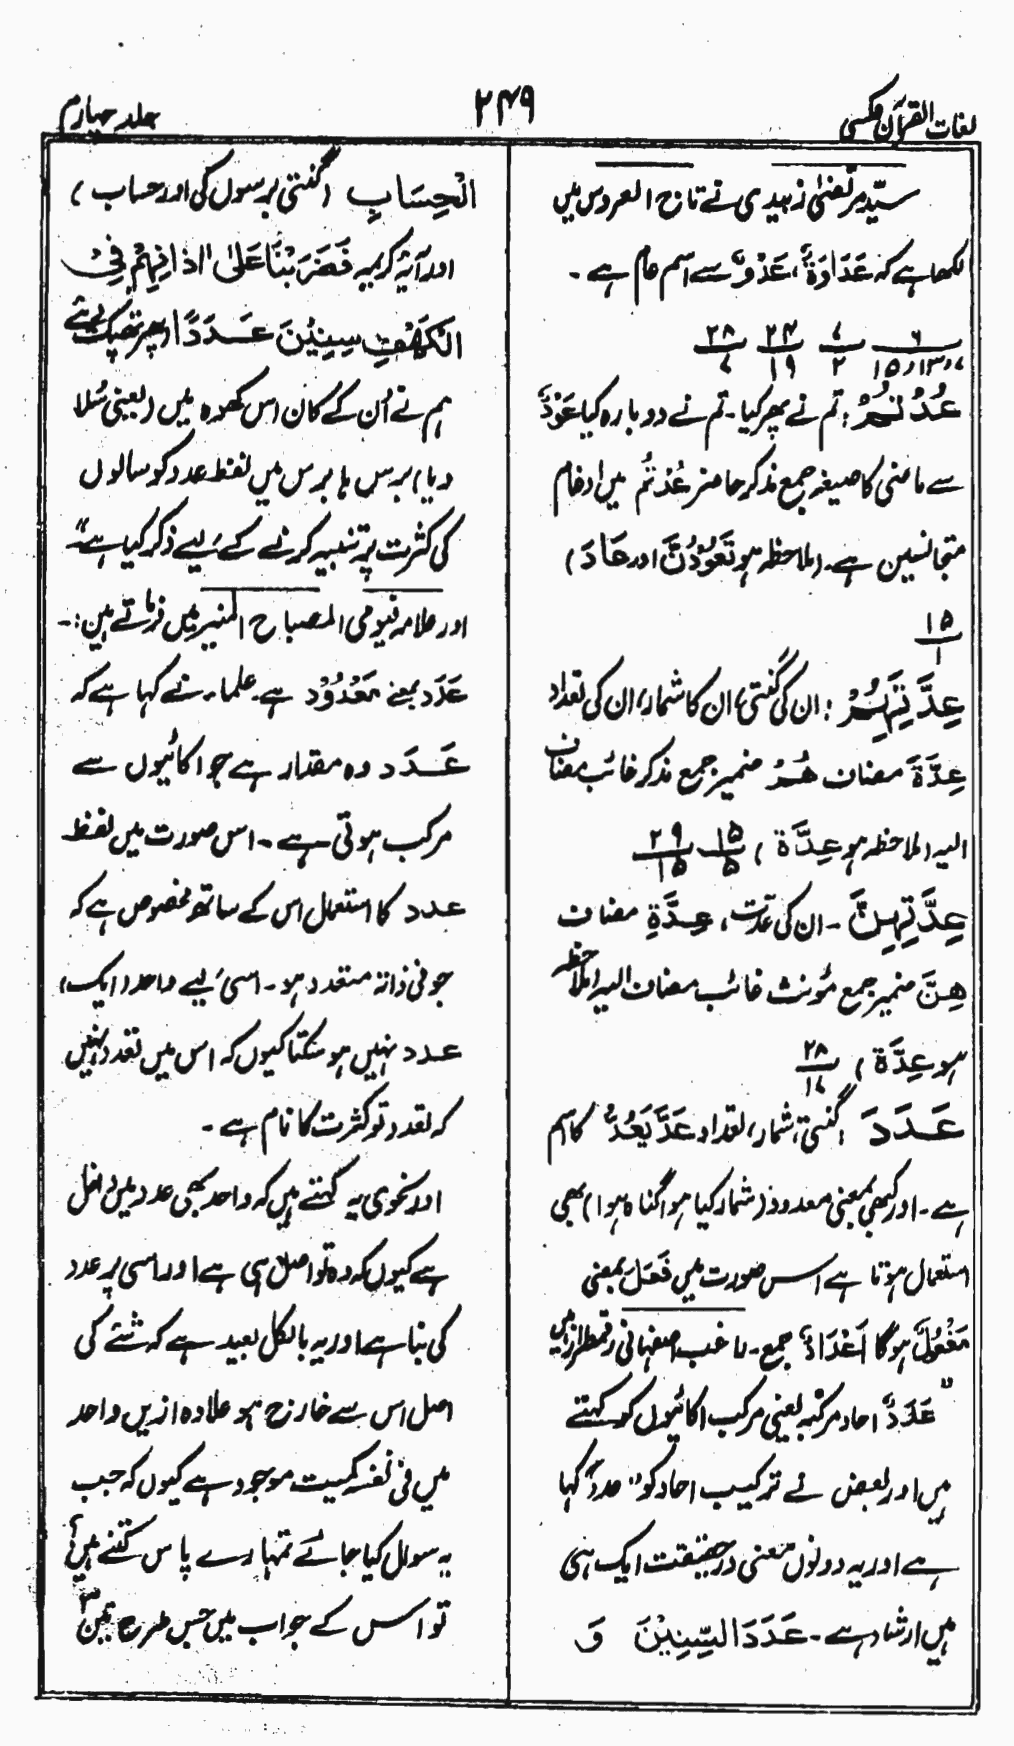 لغات القرآن عکسی
۲۴۹
جلد چہارم
سیّد مرتضیٰ زبیدی نے تاج العروس میں
لکھا ہے کہ عَدَاوَۃٌ، عَدُوٌّ سے اسم عام ہے۔
۶ ۷ ۲۴ ۲۸
۷، ۱۳، ۱۵ ۲ ۱۹ ۷
عُدْتُمْ: تم نے پھر کیا۔ تم نے دوبارہ کیا عَوْدٌ
سے ماضی کا صیغہ جمع مذکر حاضر عُدْتُم میں ادغام
متجانسین ہے۔ (ملاحظہ ہو تَعُوْدُنَّ اور عَادَ)
۱۵
۱
عِدَّتِہِمْ: ان کی گنتی، ان کا شمار، ان کی تعداد
عِدَّۃَ مضاف ھُمْ ضمیر جمع مذکر غائب مضاف
الیہ (ملاحظہ ہو عِدَّۃ) ۱۵ ۲۹
۵ ۱۵
عِدَّتِہِنَّ۔ ان کی عدّت، عِدَّۃِ مضاف
ھِنَّ ضمیر جمع مؤنث غائب مضاف الیہ (ملاحظہ
ہو عِدَّۃ) ۲۸
۱۷
عَدَدَ: گنتی، شمار، تعداد عَدَّ یَعُدُّ کا اسم
ہے۔ اور کبھی بمعنی معدود (شمار کیا ہوا گنا ہوا) بھی
استعمال ہوتا ہے اس صورت میں فَعَلَ بمعنی
مَفْعُوْلٌ ہوگا اَعْدَادٌ جمع۔ راغب اصفہانی رقمطراز ہیں
"عَدَدٌ احاد مرکبہ یعنی مرکب اکائیوں کو کہتے
ہیں اور بعض نے ترکیب احاد کو "عدد" کہا
ہے اور یہ دونوں معنی درحقیقت ایک ہی
ہیں ارشاد ہے۔ عَدَدَ السِّنِیْنَ وَ
الْحِسَابِ (گنتی برسوں کی اور حساب)
اور آیۂ کریمہ فَضَرَبْنَا عَلٰی اٰذَانِہِمْ فِی
الْکَہْفِ سِنِیْنَ عَدَدًا (پھر تھپک دیئے
ہم نے اُن کے کان اس کھوہ میں (یعنی سُلا
دیا) برس ہا برس میں لفظ عدد کو سالوں
کی کثرت پر تنبیہ کرنے کے لیے ذکر کیا ہے"
اور علامہ فیومی المصباح المنیر میں فرماتے ہیں:۔
عَدَد بمعنے مَعْدُوْد ہے۔ علماء نے کہا ہے کہ
عَدَد وہ مقدار ہے جو اکائیوں سے
مرکب ہوتی ہے۔ اس صورت میں لفظ
عدد کا استعمال اس کے ساتھ مخصوص ہے کہ
جو فی ذاتہ متعدد ہو۔ اسی لیے واحد (ایک)
عدد نہیں ہوسکتا کیوں کہ اس میں تعدد نہیں
کہ تعدد تو کثرت کا نام ہے۔
اور نحوی یہ کہتے ہیں کہ واحد بھی عدد میں داخل
ہے کیوں کہ وہ تو اصل ہی ہے اور اسی پر عدد
کی بنا ہے اور یہ بالکل بعید ہے کہ شئے کی
اصل اس سے خارج ہو علاوہ ازیں واحد
میں فی نفسہ کمیت موجود ہے کیوں کہ جب
یہ سوال کیا جائے تمہارے پاس کتنے ہیں؟
تو اس کے جواب میں جس طرح تین ۳